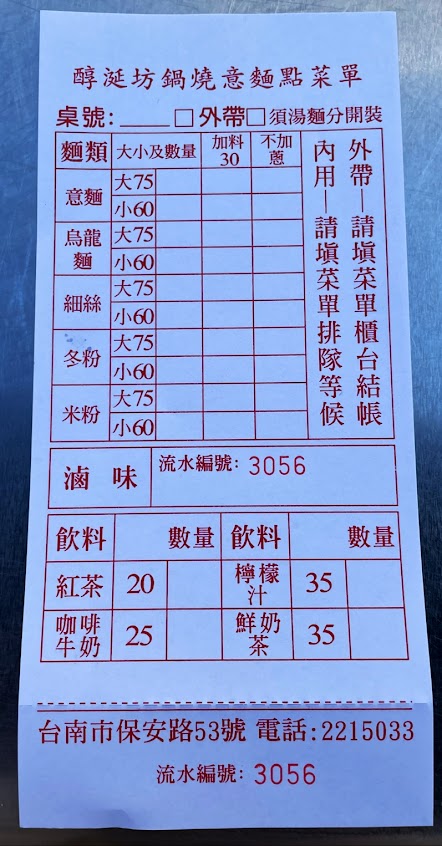 醇涎坊鍋燒意麵點菜單
桌號:____ □外帶□須湯麵分開裝
麵類 大小及數量 加料30 不加蔥
意麵 大75
小60
烏龍麵 大75
小60
細絲 大75
小60
冬粉 大75
小60
米粉 大75
小60
外帶—請填菜單櫃台結帳
內用—請填菜單排隊等候
滷味 流水編號: 3056
飲料 數量 飲料 數量
紅茶 20 檸檬汁 35
咖啡牛奶 25 鮮奶茶 35
台南市保安路53號 電話:2215033
流水編號: 3056